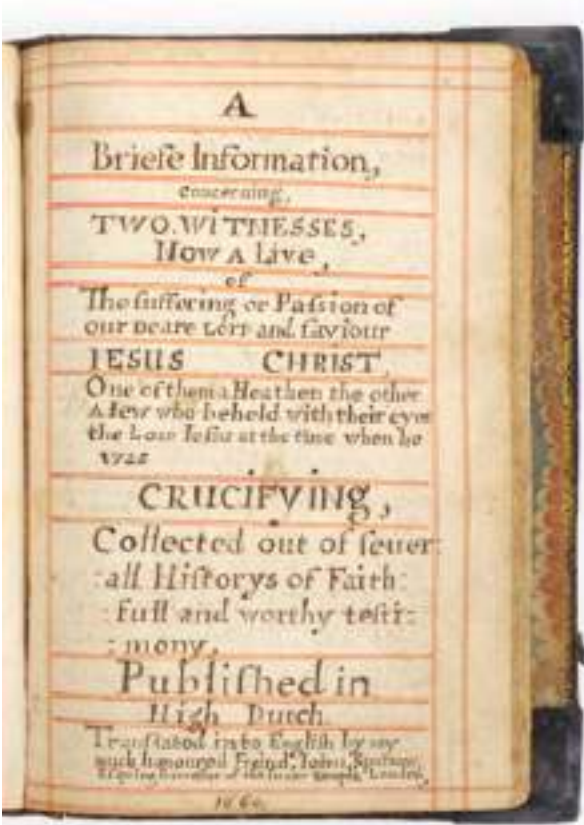 A
Briefe Information,
Concerning,
TWO.WITNESSES,
Now A Live,
of
The suffering or Passion of
our Deare Lort and Saviour
IESUS CHRIST,
One of them a Heathen the other
A Iew who behold with their eyes
the Lord Iesus at the time when he
was
CRUCIFYING,
Collected out of sever:
:all Historys of Faith:
:full and worthy testi:
:mony,
Published in
High Dutch
Translated into English by my
much honoured Freind, Iohn
of the Inner Temple, London,